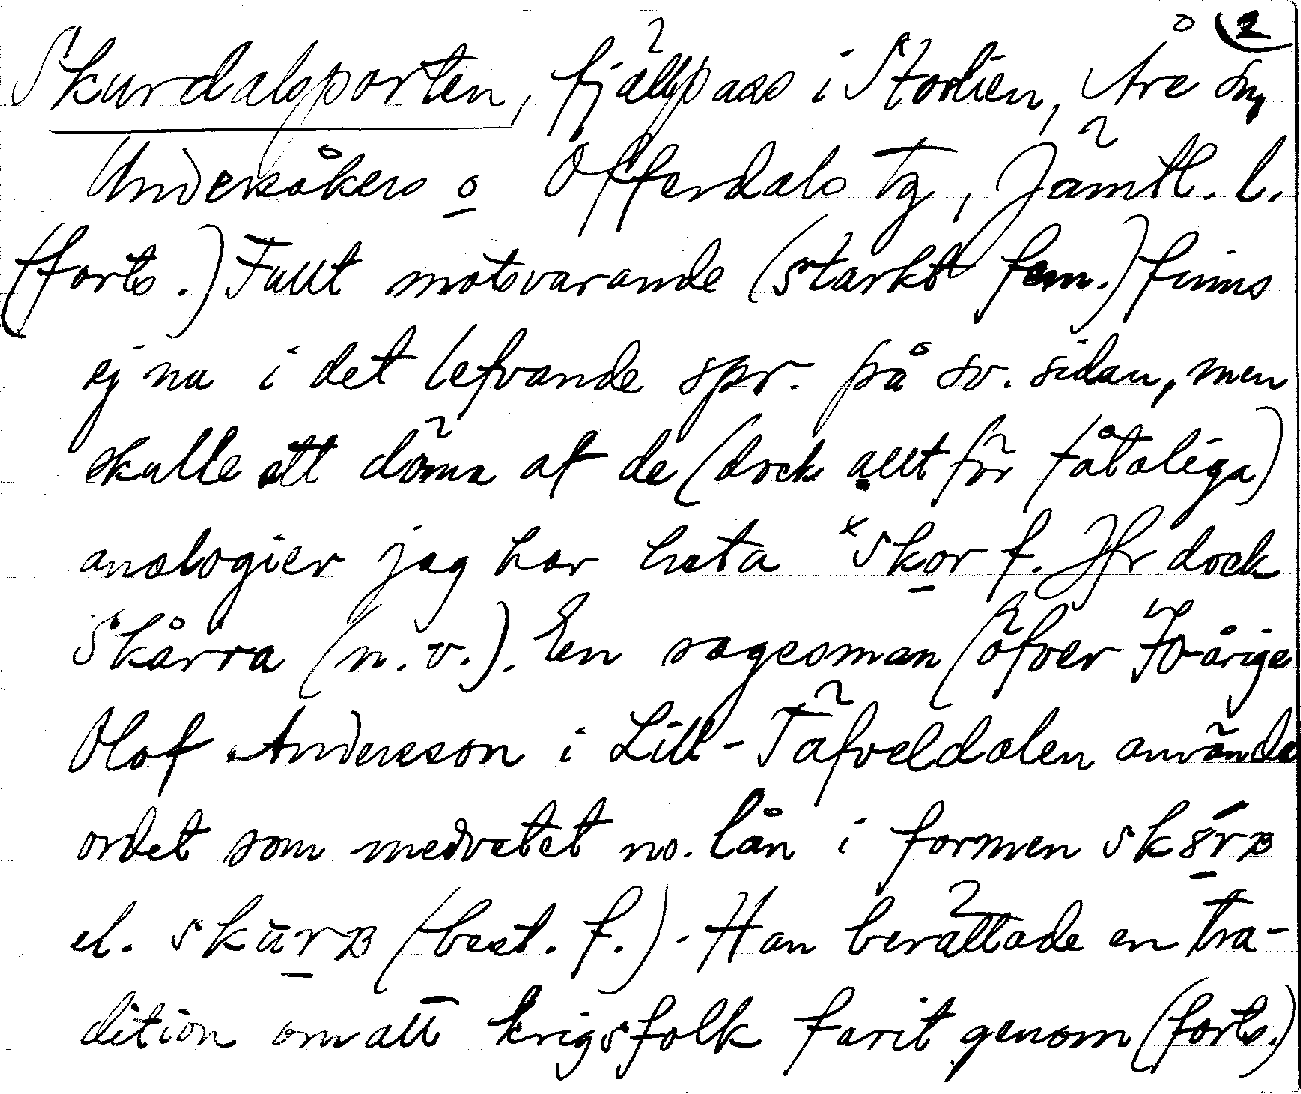 2
Skurdalsporten, fjällpass i Storlien, Åre sn,
Undersåkers o Offerdals tg, Jämtl. l.
(forts.) Fullt motsvarande (starkt fem.) finns
ej nu i det lefvande spr. på sv. sidan, men
skulle att döma af de (dock allt för fåtaliga)
analogier jag har heta *Skor f. Jfr dock
Skårra (n. v.). En sagesman (öfver 70-årige
Olof Andersson i Lill-Täfveldalen använde
ordet som medvetet no. lån i formen
el. (best. f.). Han berättade en tra-
dition om att krigsfolk farit genom (forts.)